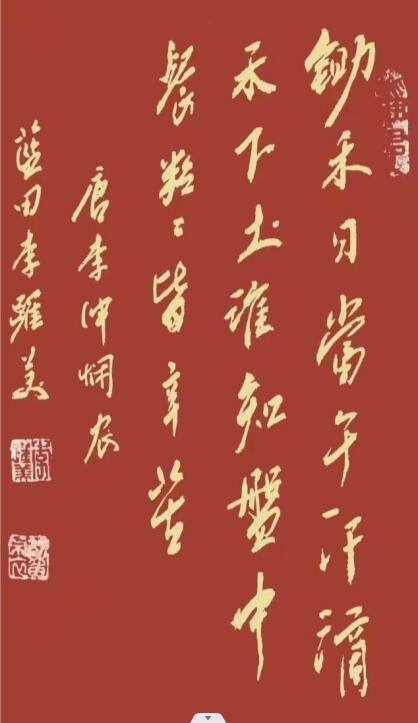 鋤禾日當午汗滴
禾下土誰知盤中
餐粒〻皆辛苦
唐李紳憫农
藍田李美